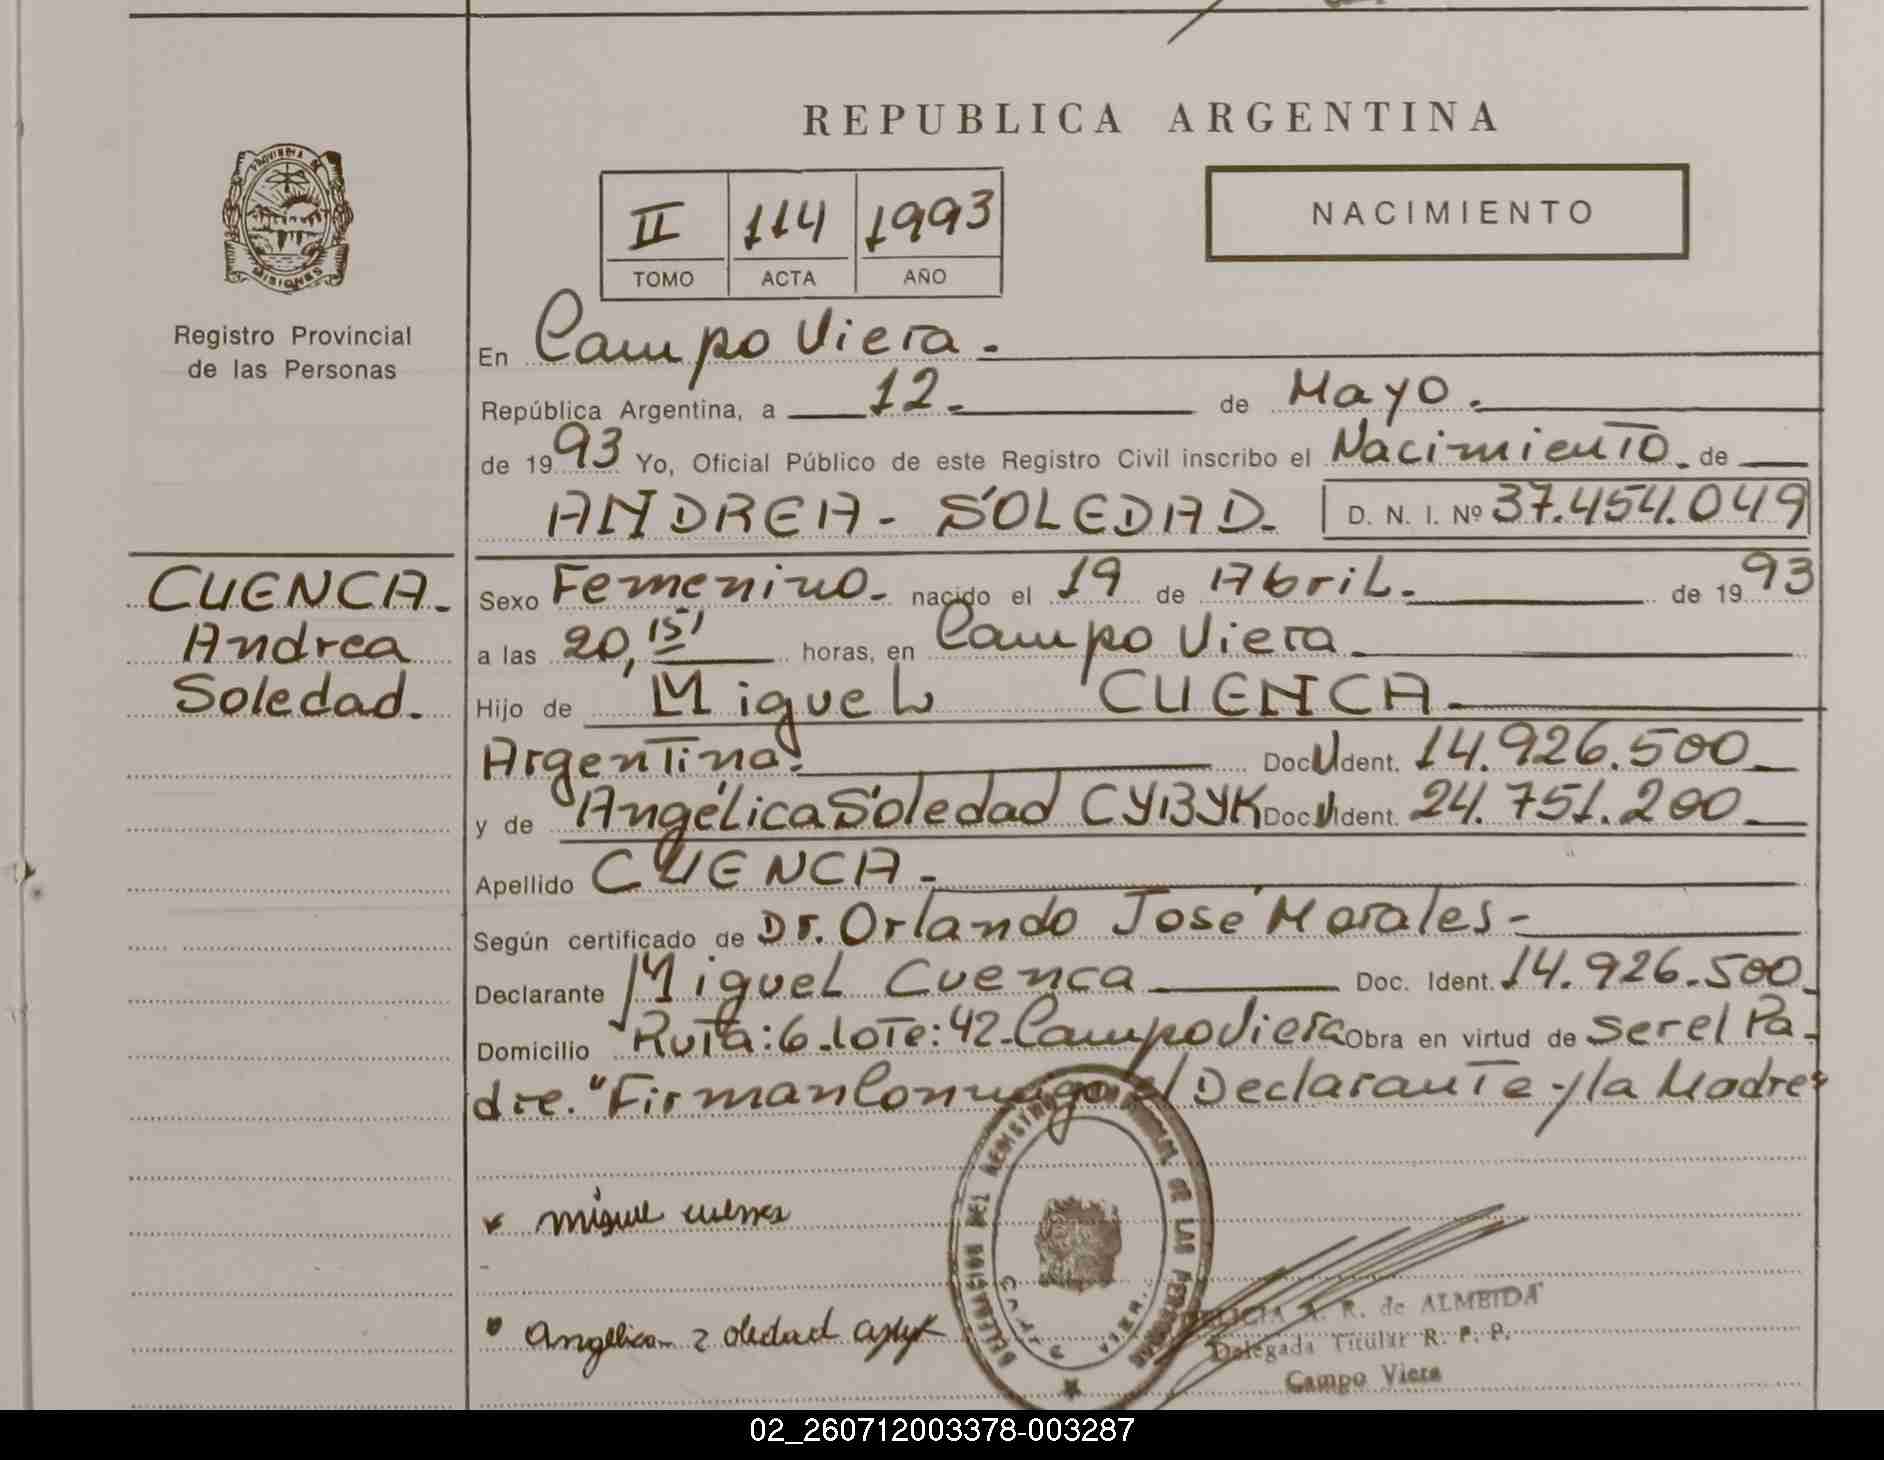 REPUBLICA ARGENTINA
PROVINCIA DE
MISIONES
Registro Provincial
de las Personas
II 114 1993
TOMO ACTA AÑO
NACIMIENTO
En Campo Viera.
República Argentina, a 12. de Mayo.
de 1993 Yo, Oficial Público de este Registro Civil inscribo el Nacimiento. de
ANDREA - SOLEDAD. D. N. I. Nº 37.454.049
CUENCA.
Andrea
Soledad.
Sexo Femenino. nacido el 19 de Abril. de 1993
a las 20,15' horas, en Campo Viera.
Hijo de Miguel CUENCA.
Argentina. Doc U Ident. 14.926.500
y de Angélica Soledad CYBYK Doc U Ident. 24.751.200
Apellido CUENCA.
Según certificado de Dr. Orlando José Morales-
Declarante Miguel Cuenca Doc. Ident. 14.926.500
Domicilio Ruta: 6. lote: 42. Campo Viera Obra en virtud de Ser el Pa-
dre. "Firman Conmigo el Declarante y la Madre"
miguel cuenca
Angelica Soledad cybyk
DELEGACION DEL REGISTRO DE LAS PERSONAS
A. R. de ALMEIDA
Delegada Titular R. P. P.
Campo Viera
02_260712003378-003287